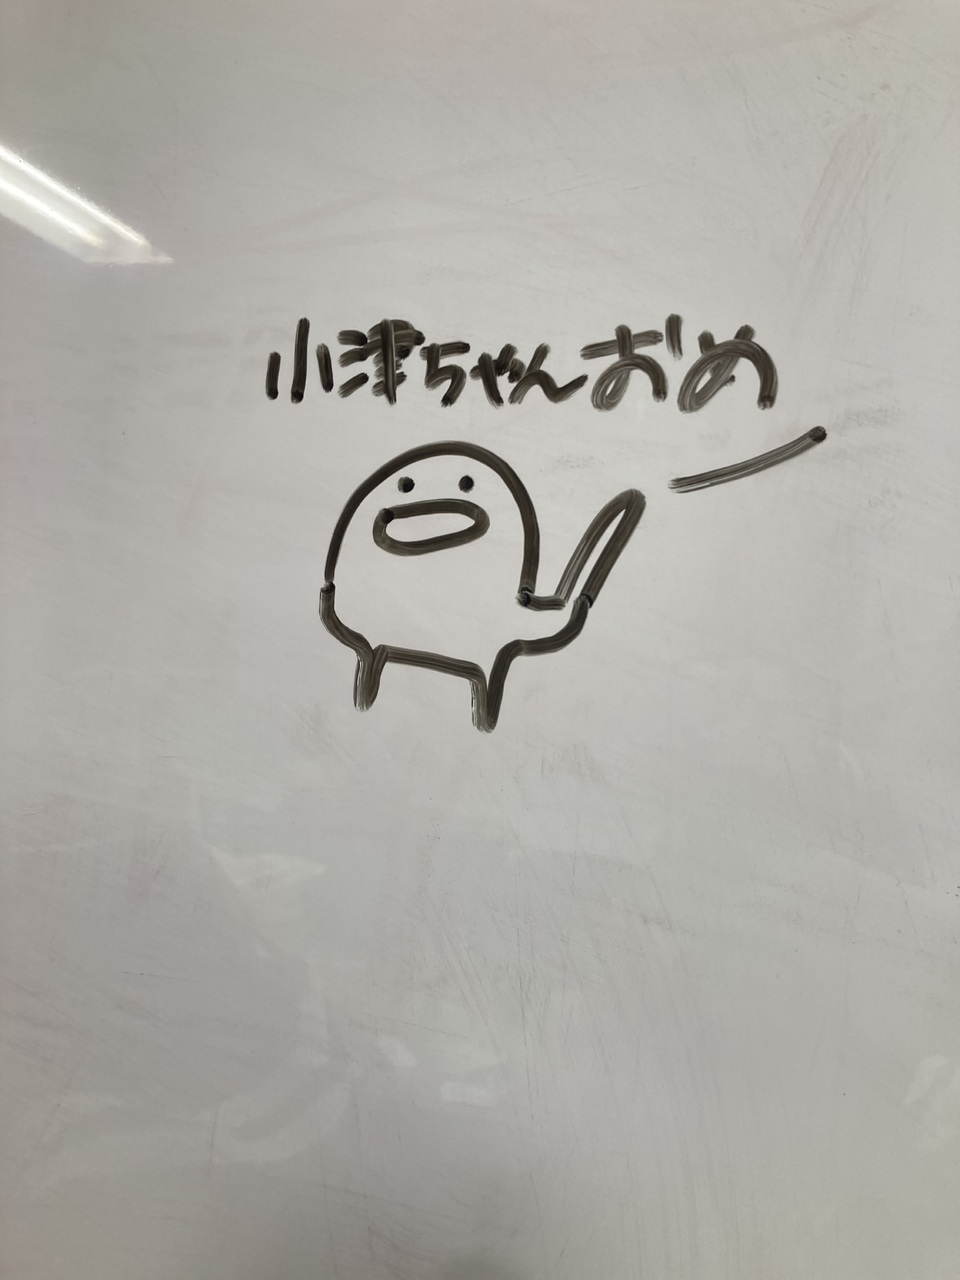 小津ちゃんおめ